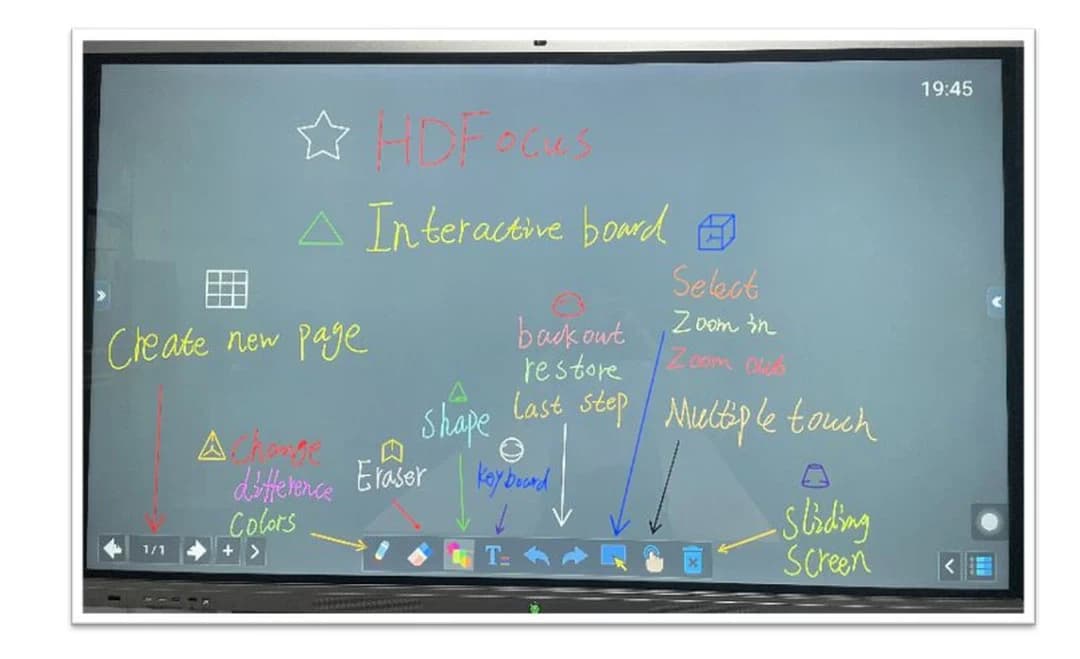 19:45
HDFocus
Interactive board
Create new page
Select
Zoom in
Zoom out
back out
restore
last step
Multiple touch
shape
Change
difference
Colors
Eraser
keyboard
Sliding
Screen
1/1
T